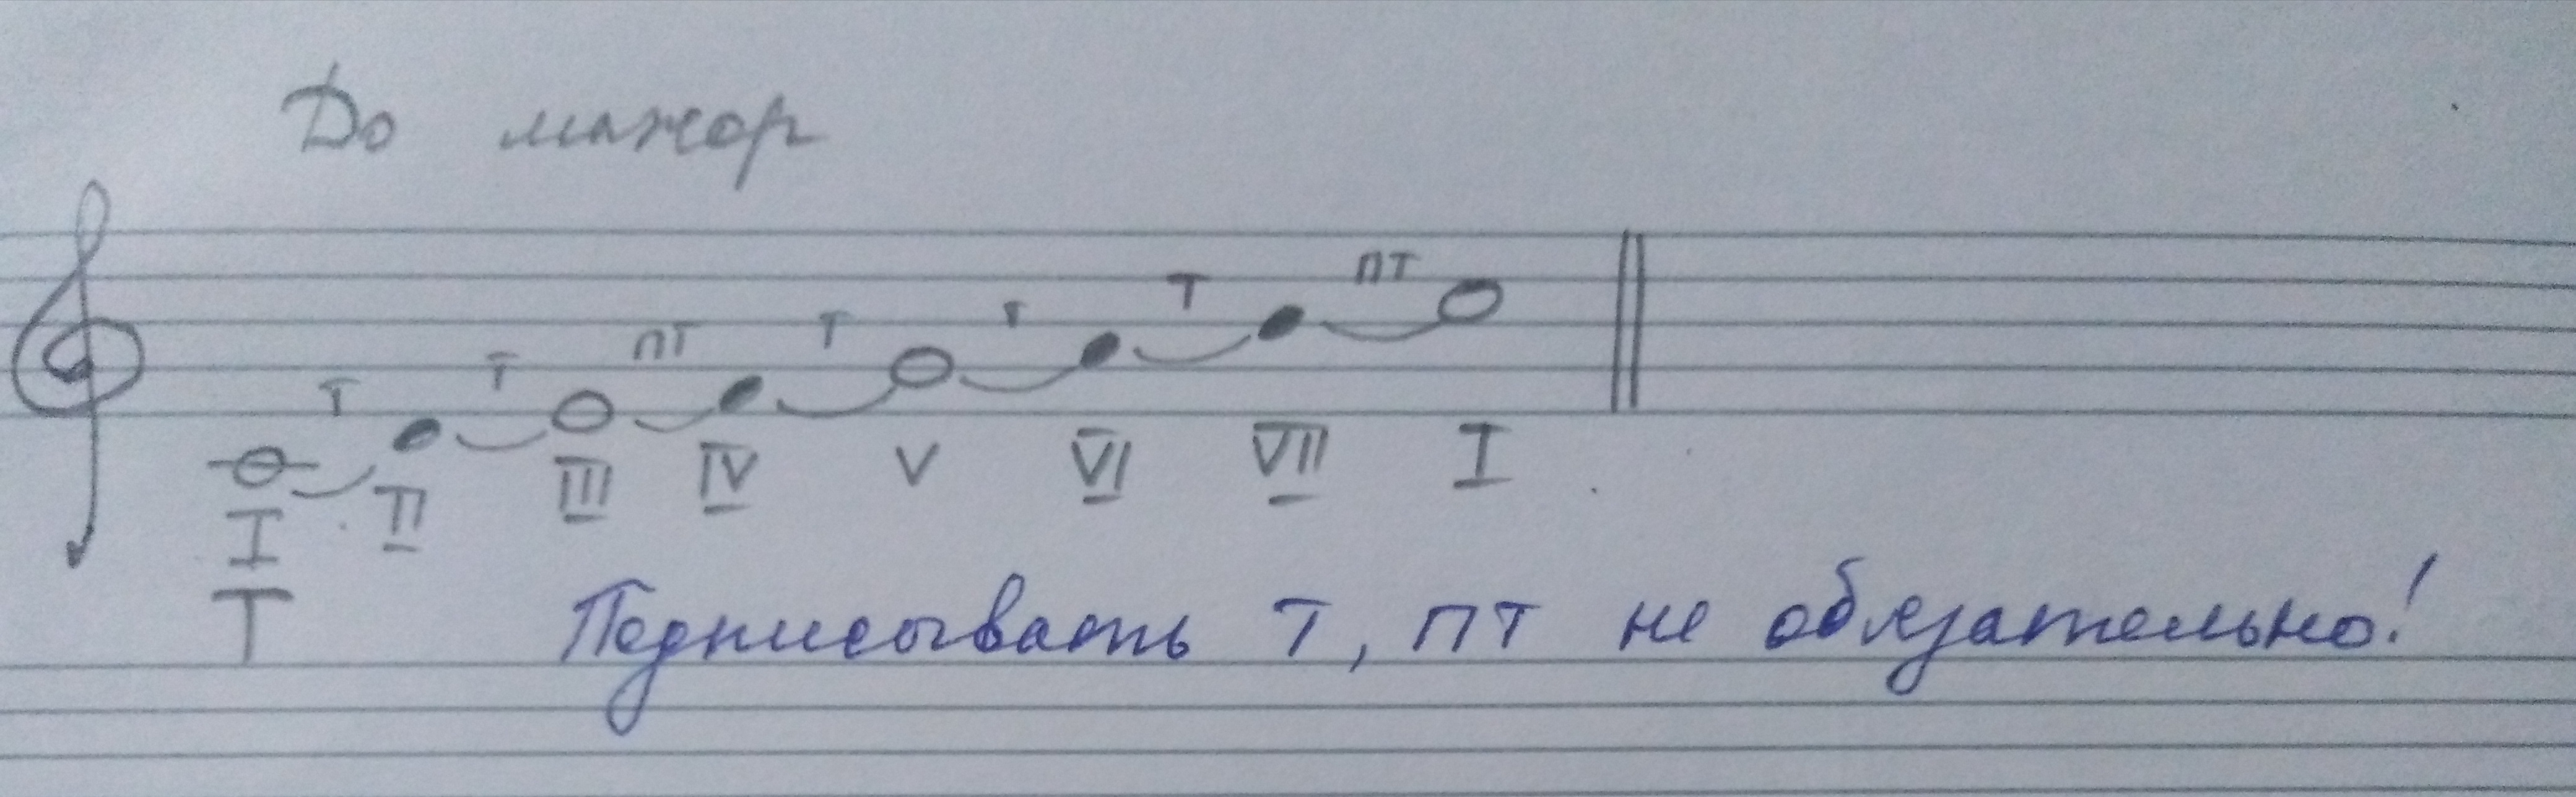 До мажор
Т Т пт Т Т Т пт
I II III IV V VI VII I
Т
Подписывать Т, пт не обязательно!